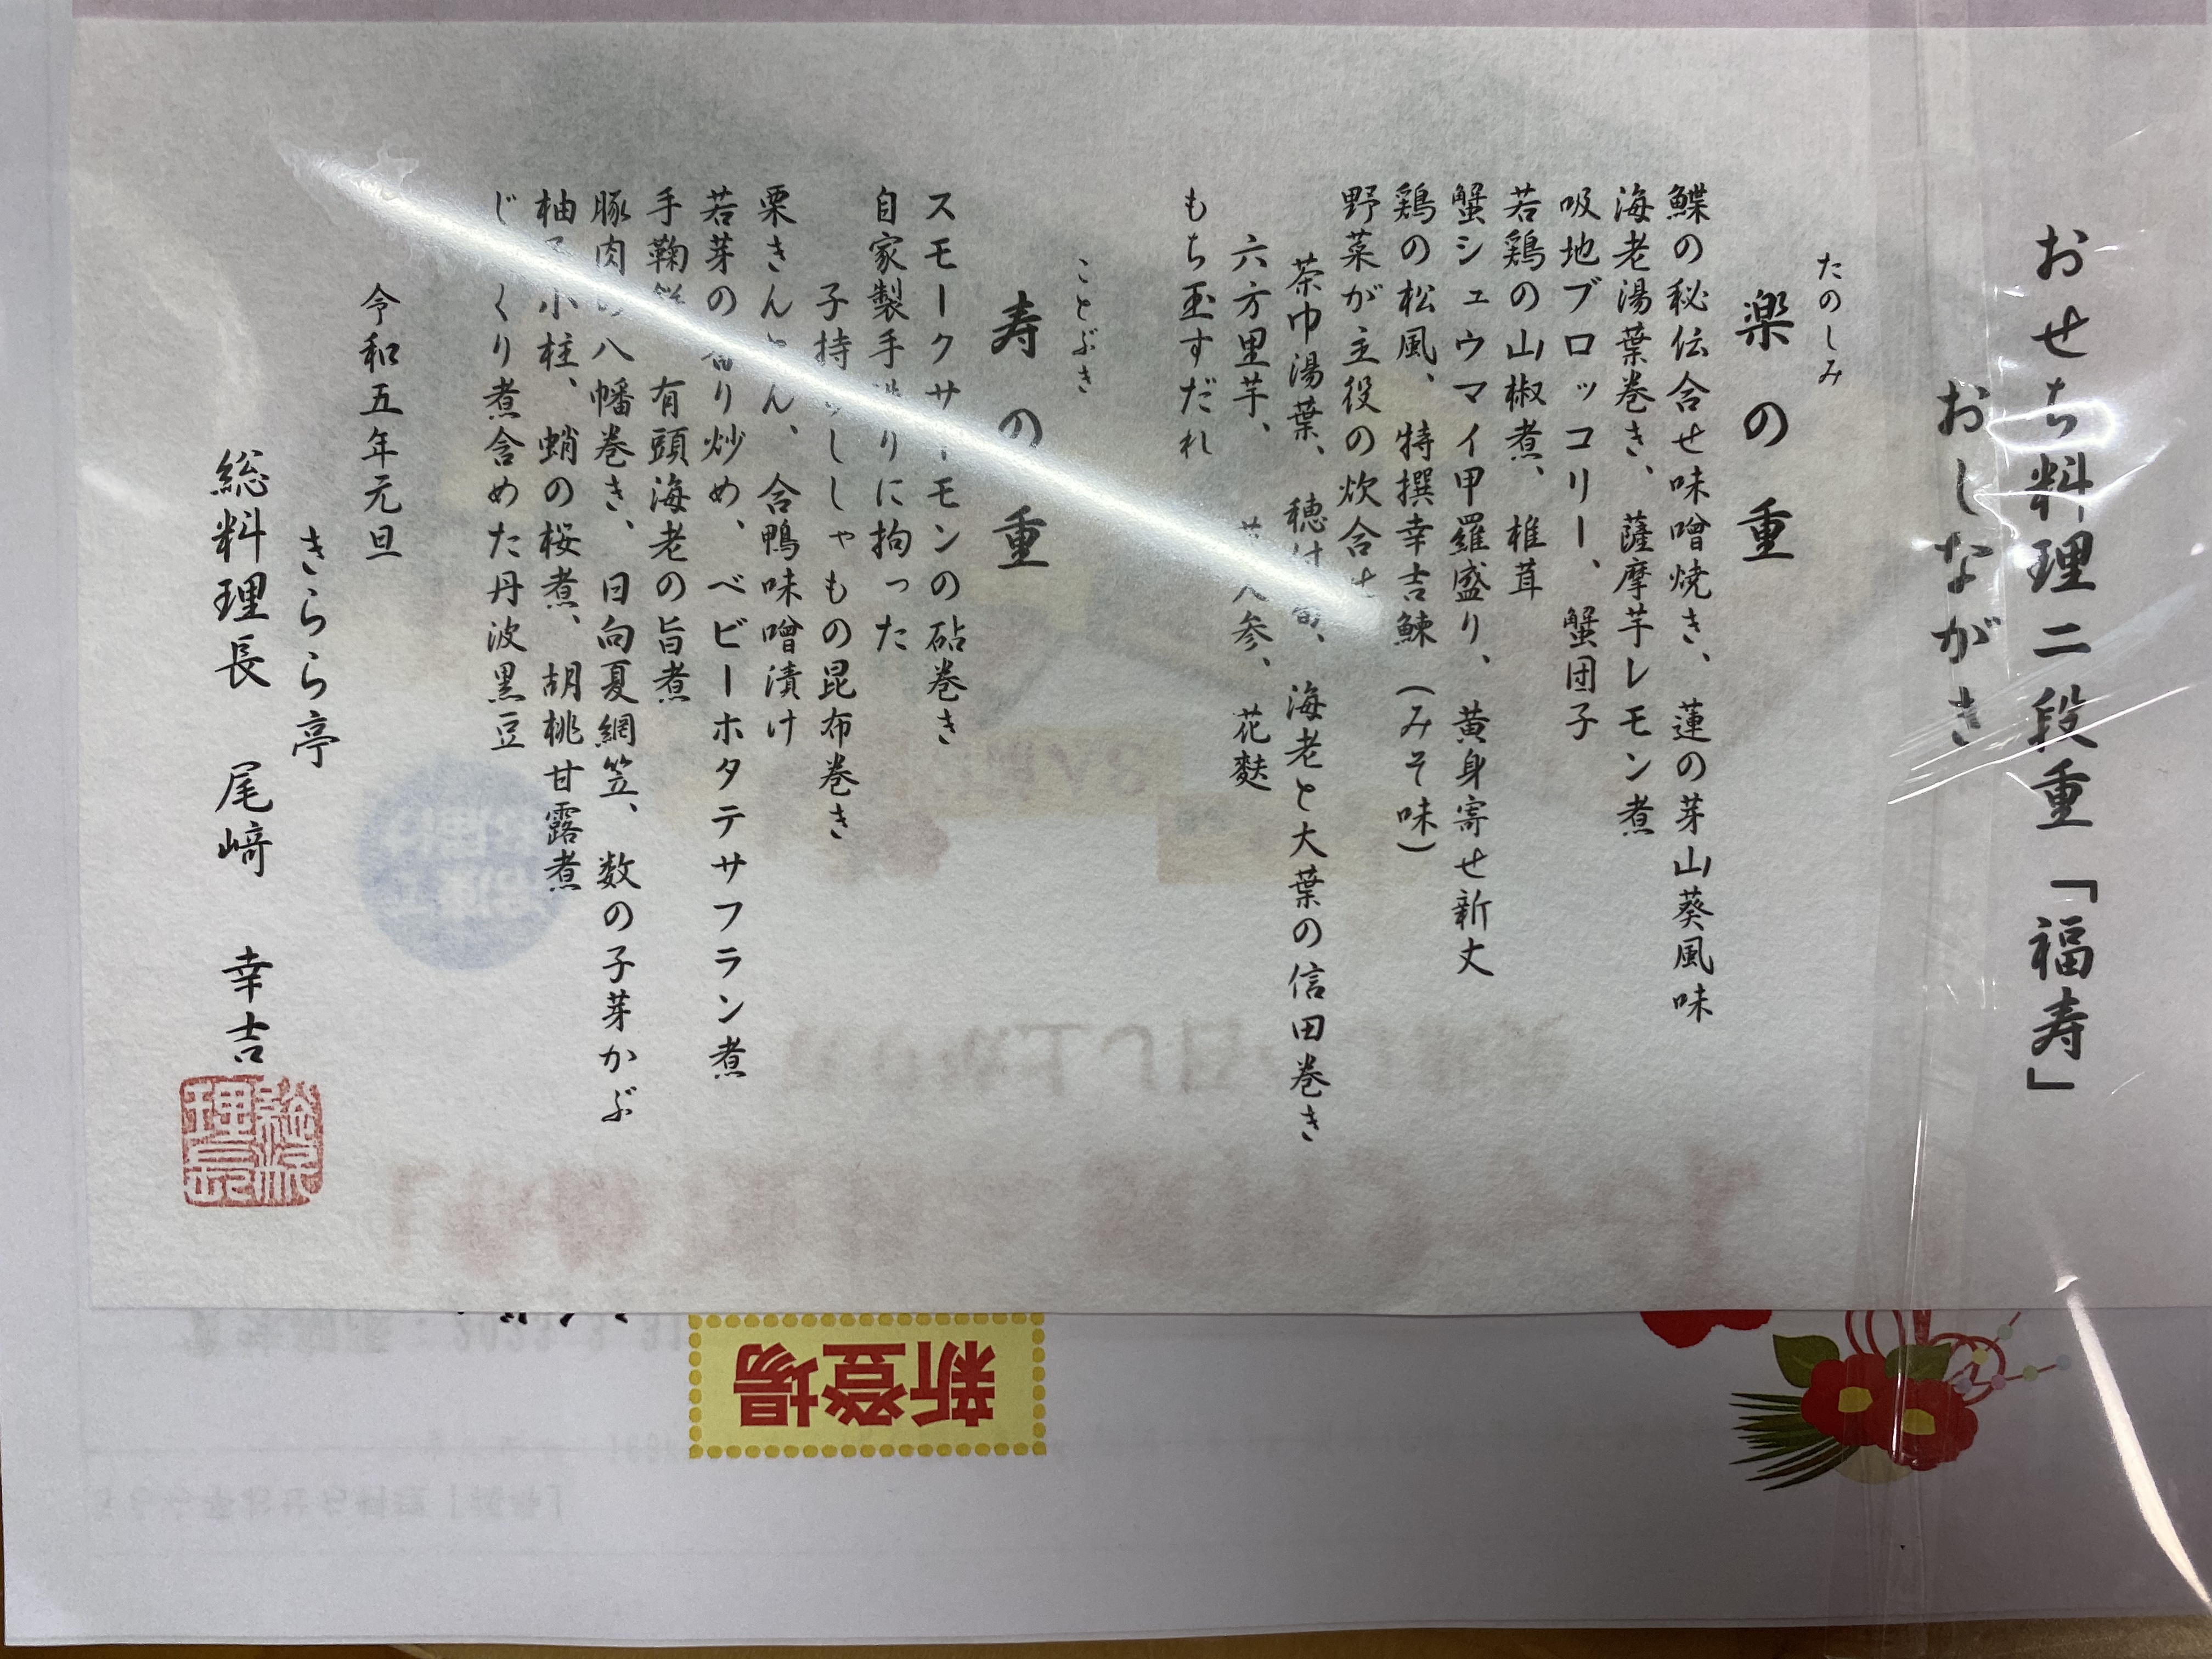 おせち料理二段重「福寿」
おしながき
たのしみ
楽の重
鰈の秘伝合せ味噌焼き、蓮の芽山葵風味
海老湯葉巻き、薩摩芋レモン煮
吸地ブロッコリー、蟹団子
若鶏の山椒煮、椎茸
蟹シュウマイ甲羅盛り、黄身寄せ新丈
鶏の松風、特撰幸吉鰊(みそ味)
野菜が主役の炊合せ
茶巾湯葉、穂付筍、海老と大葉の信田巻き
六方里芋、人参、花麩
もち玉すだれ
ことぶき
寿の重
スモークサーモンの砧巻き
自家製手造りに拘った
子持ししゃもの昆布巻き
栗きんとん、合鴨味噌漬け
若芽の香り炒め、ベビーホタテサフラン煮
手鞠餅 有頭海老の旨煮
豚肉の八幡巻き、日向夏網笠、数の子芽かぶ
柚子小柱、蛸の桜煮、胡桃甘露煮
じっくり煮含めた丹波黒豆
令和五年元旦
きらら亭
総料理長 尾﨑 幸吉
総料理長
新登場